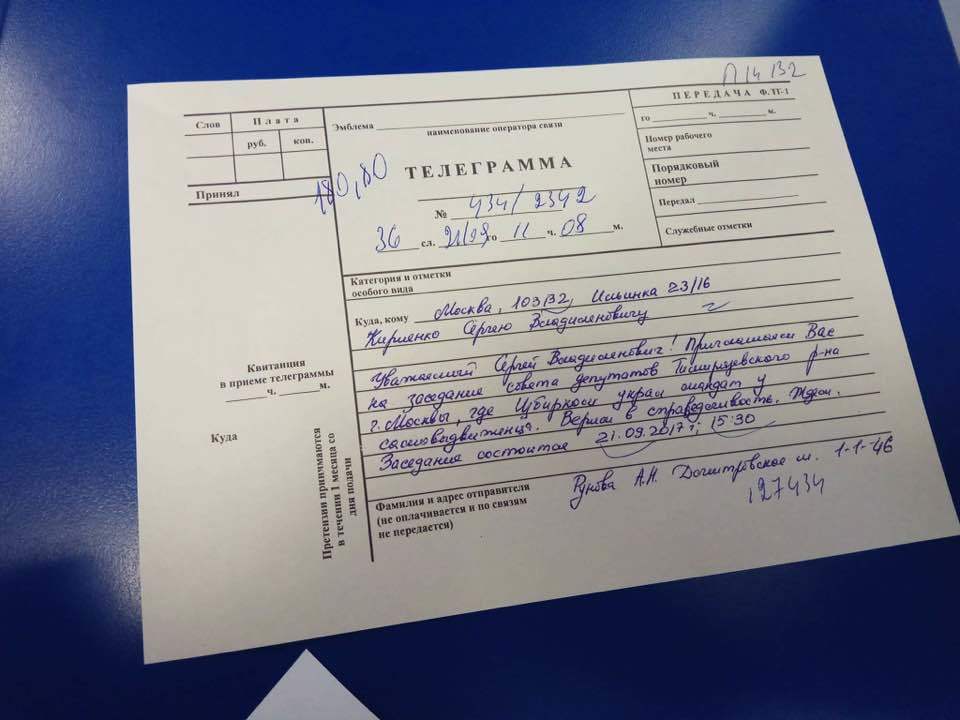 П 14 132
Слов
Плата
руб.
коп.
Принял
180,80
Эмблема
наименование оператора связи
ТЕЛЕГРАММА
№ 434/2342
36 сл. 21/09 го 11 ч. 08 м.
ПЕРЕДАЧА Ф.ТГ-1
го ч. м.
Номер рабочего
места
Порядковый
номер
Передал
Служебные отметки
Категория и отметки
особого вида
Куда, кому Москва, 103132, Ильинка 23/16
Кириенко Сергею Владиленовичу
Уважаемый Сергей Владиленович! Приглашаем Вас
на заседание совета депутатов Тимирязевского р-на
г. Москвы, где Избирком украл мандат у
самовыдвиженца. Верим в справедливость. Ждем.
Заседание состоится 21.09.2017 г. 15:30
Фамилия и адрес отправителя
(не оплачивается и по связям
не передается)
Рунова А.Н. Дмитровское ш. 1-1-46
127434
Квитанция
в приеме телеграммы
ч. м.
Куда
Претензии принимаются
в течении 1 месяца со
дня подачи